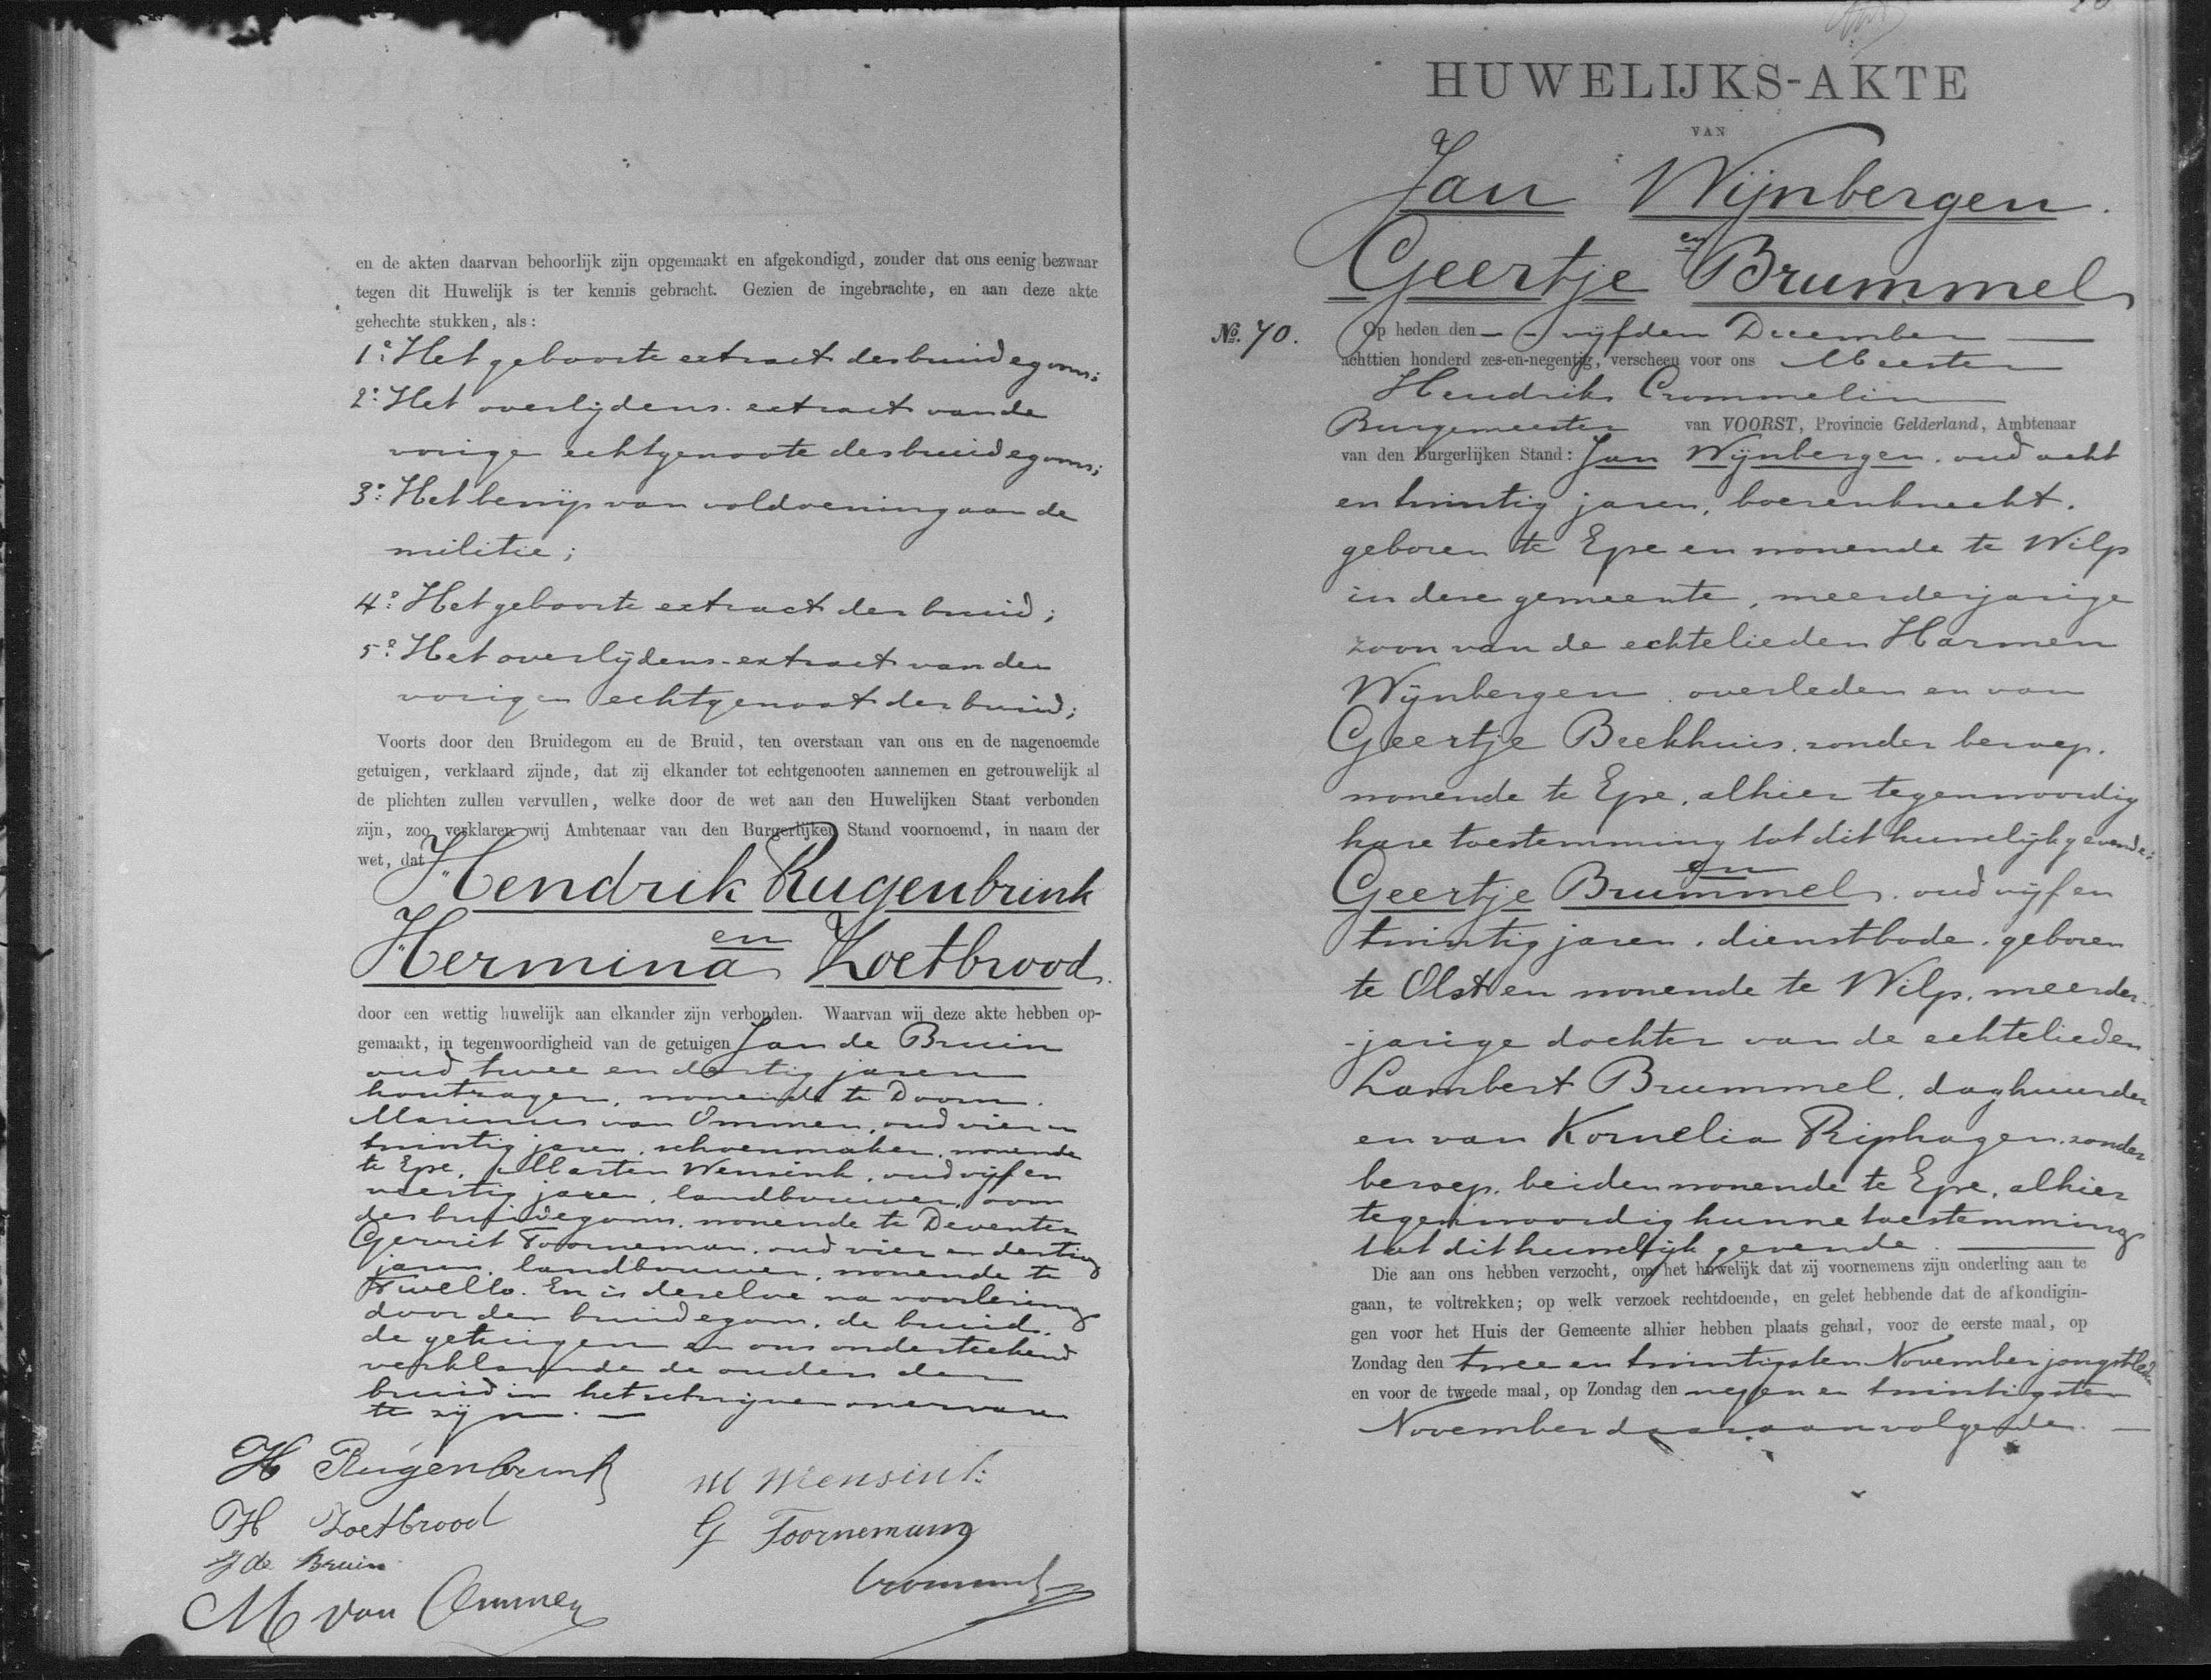 en de akten daarvan behoorlijk zijn opgemaakt en afgekondigd, zonder dat ons eenig bezwaar
tegen dit Huwelijk is ter kennis gebracht. Gezien de ingebrachte, en aan deze akte
gehechte stukken, als:
1º. Het geboorte extract des bruidegoms;
2º. Het overlijdens-extract van de
vorige echtgenoote des bruidegoms;
3º. Het bewijs van voldoening aan de
militie;
4º. Het geboorte extract der bruid;
5º. Het overlijdens-extract van den
vorigen echtgenoot der bruid;
Voorts door den Bruidegom en de Bruid, ten overstaan van ons en de nagenoemde
getuigen, verklaard zijnde, dat zij elkander tot echtgenooten aannemen en getrouwelijk al
de plichten zullen vervullen, welke door de wet aan den Huwelijken Staat verbonden
zijn, zoo verklaren wij Ambtenaar van den Burgerlijken Stand voornoemd, in naam der
wet, dat
Hendrik Rugenbrink
en
Hermina Zoetbrood.
door een wettig huwelijk aan elkander zijn verbonden. Waarvan wij deze akte hebben op-
gemaakt, in tegenwoordigheid van de getuigen Jan de Bruin
oud twee en dertig jaren
houtzager, wonende te Doorn.
Marinus van Ommen, oud vier en
twintig jaren, schoenmaker, wonende
te Epe, Marten Wensink, oud vijf en
veertig jaren, landbouwer, oom
des bruidegoms, wonende te Deventer
Gerrit Toorneman, oud vier en dertig
jaren, landbouwer, wonende te
Twello. En is dezelve na voorlezing
door den bruidegom, de bruid,
de getuigen en ons onderteekend
verklarende de ouders der
bruid in het schrijven onervaren
te zijn. —
H Rugenbrink
M Wensink
H Zoetbrood
G Toorneman
J de Bruin
Crommelin
M van Ommen
HUWELIJKS-AKTE
VAN
Jan Wijnbergen.
en
Geertje Brummel
Nº. 70. Op heden den - - vijfden December —
achttien honderd zes-en-negentig, verscheen voor ons Meester
Hendrik Crommelin
Burgemeester van VOORST, Provincie Gelderland, Ambtenaar
van den Burgerlijken Stand: Jan Wijnbergen, oud acht
en twintig jaren, boerenknecht,
geboren te Epe en wonende te Wilp
in deze gemeente, meerderjarige
zoon van de echtelieden Harmen
Wijnbergen, overleden en van
Geertje Beekhuis, zonder beroep,
wonende te Epe, alhier tegenwoordig
hare toestemming tot dit huwelijk gevende;
en
Geertje Brummel, oud vijf en
twintig jaren, dienstbode, geboren
te Olst en wonende te Wilp, meerder-
-jarige dochter van de echtelieden
Lambert Brummel, daghuurder
en van Kornelia Riphagen, zonder
beroep, beiden wonende te Epe, alhier
tegenwoordig hunne toestemming
tot dit huwelijk gevende. —
Die aan ons hebben verzocht, om het huwelijk dat zij voornemens zijn onderling aan te
gaan, te voltrekken; op welk verzoek rechtdoende, en gelet hebbende dat de afkondigin-
gen voor het Huis der Gemeente alhier hebben plaats gehad, voor de eerste maal, op
Zondag den twee en twintigsten November jongstleden
en voor de tweede maal, op Zondag den negen en twintigsten
November daaraanvolgende. —